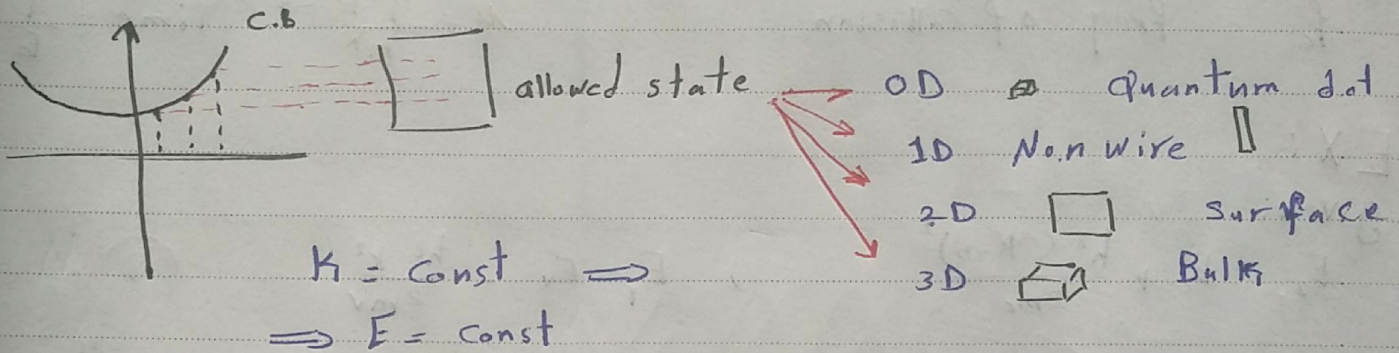 C.B
allowed state
0D Quantum dot
1D Nanwire
2D Surface
3D Bulk
K = Const ⟹
⟹ E = Const